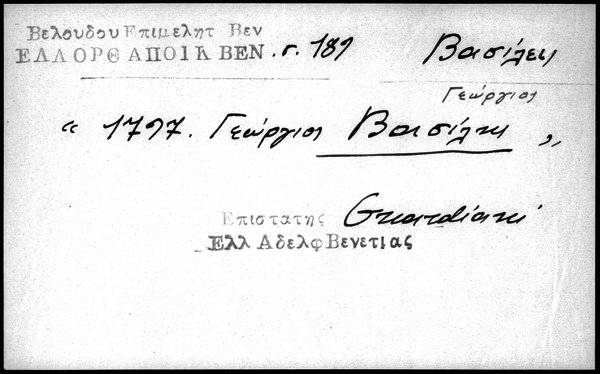 Βελουδου Επιμελητ Βεν
ΕΛΛ ΟΡΘ ΑΠΟΙΚ ΒΕΝ . σ. 189 Βασίλης
Γεώργιος
“ 1797. Γεώργιος Βασίλης „
Επιστατης Guardiani
Ελλ Αδελφ Βενετιας